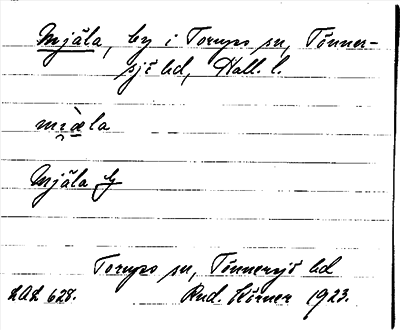 Mjäla, by i Torups sn, Tönner-
sjö hd, Hall. l.
mi̯àela
Mjäla by
Torups sn, Tönnersjö hd
LAL 628. Rud. Körner 1923.